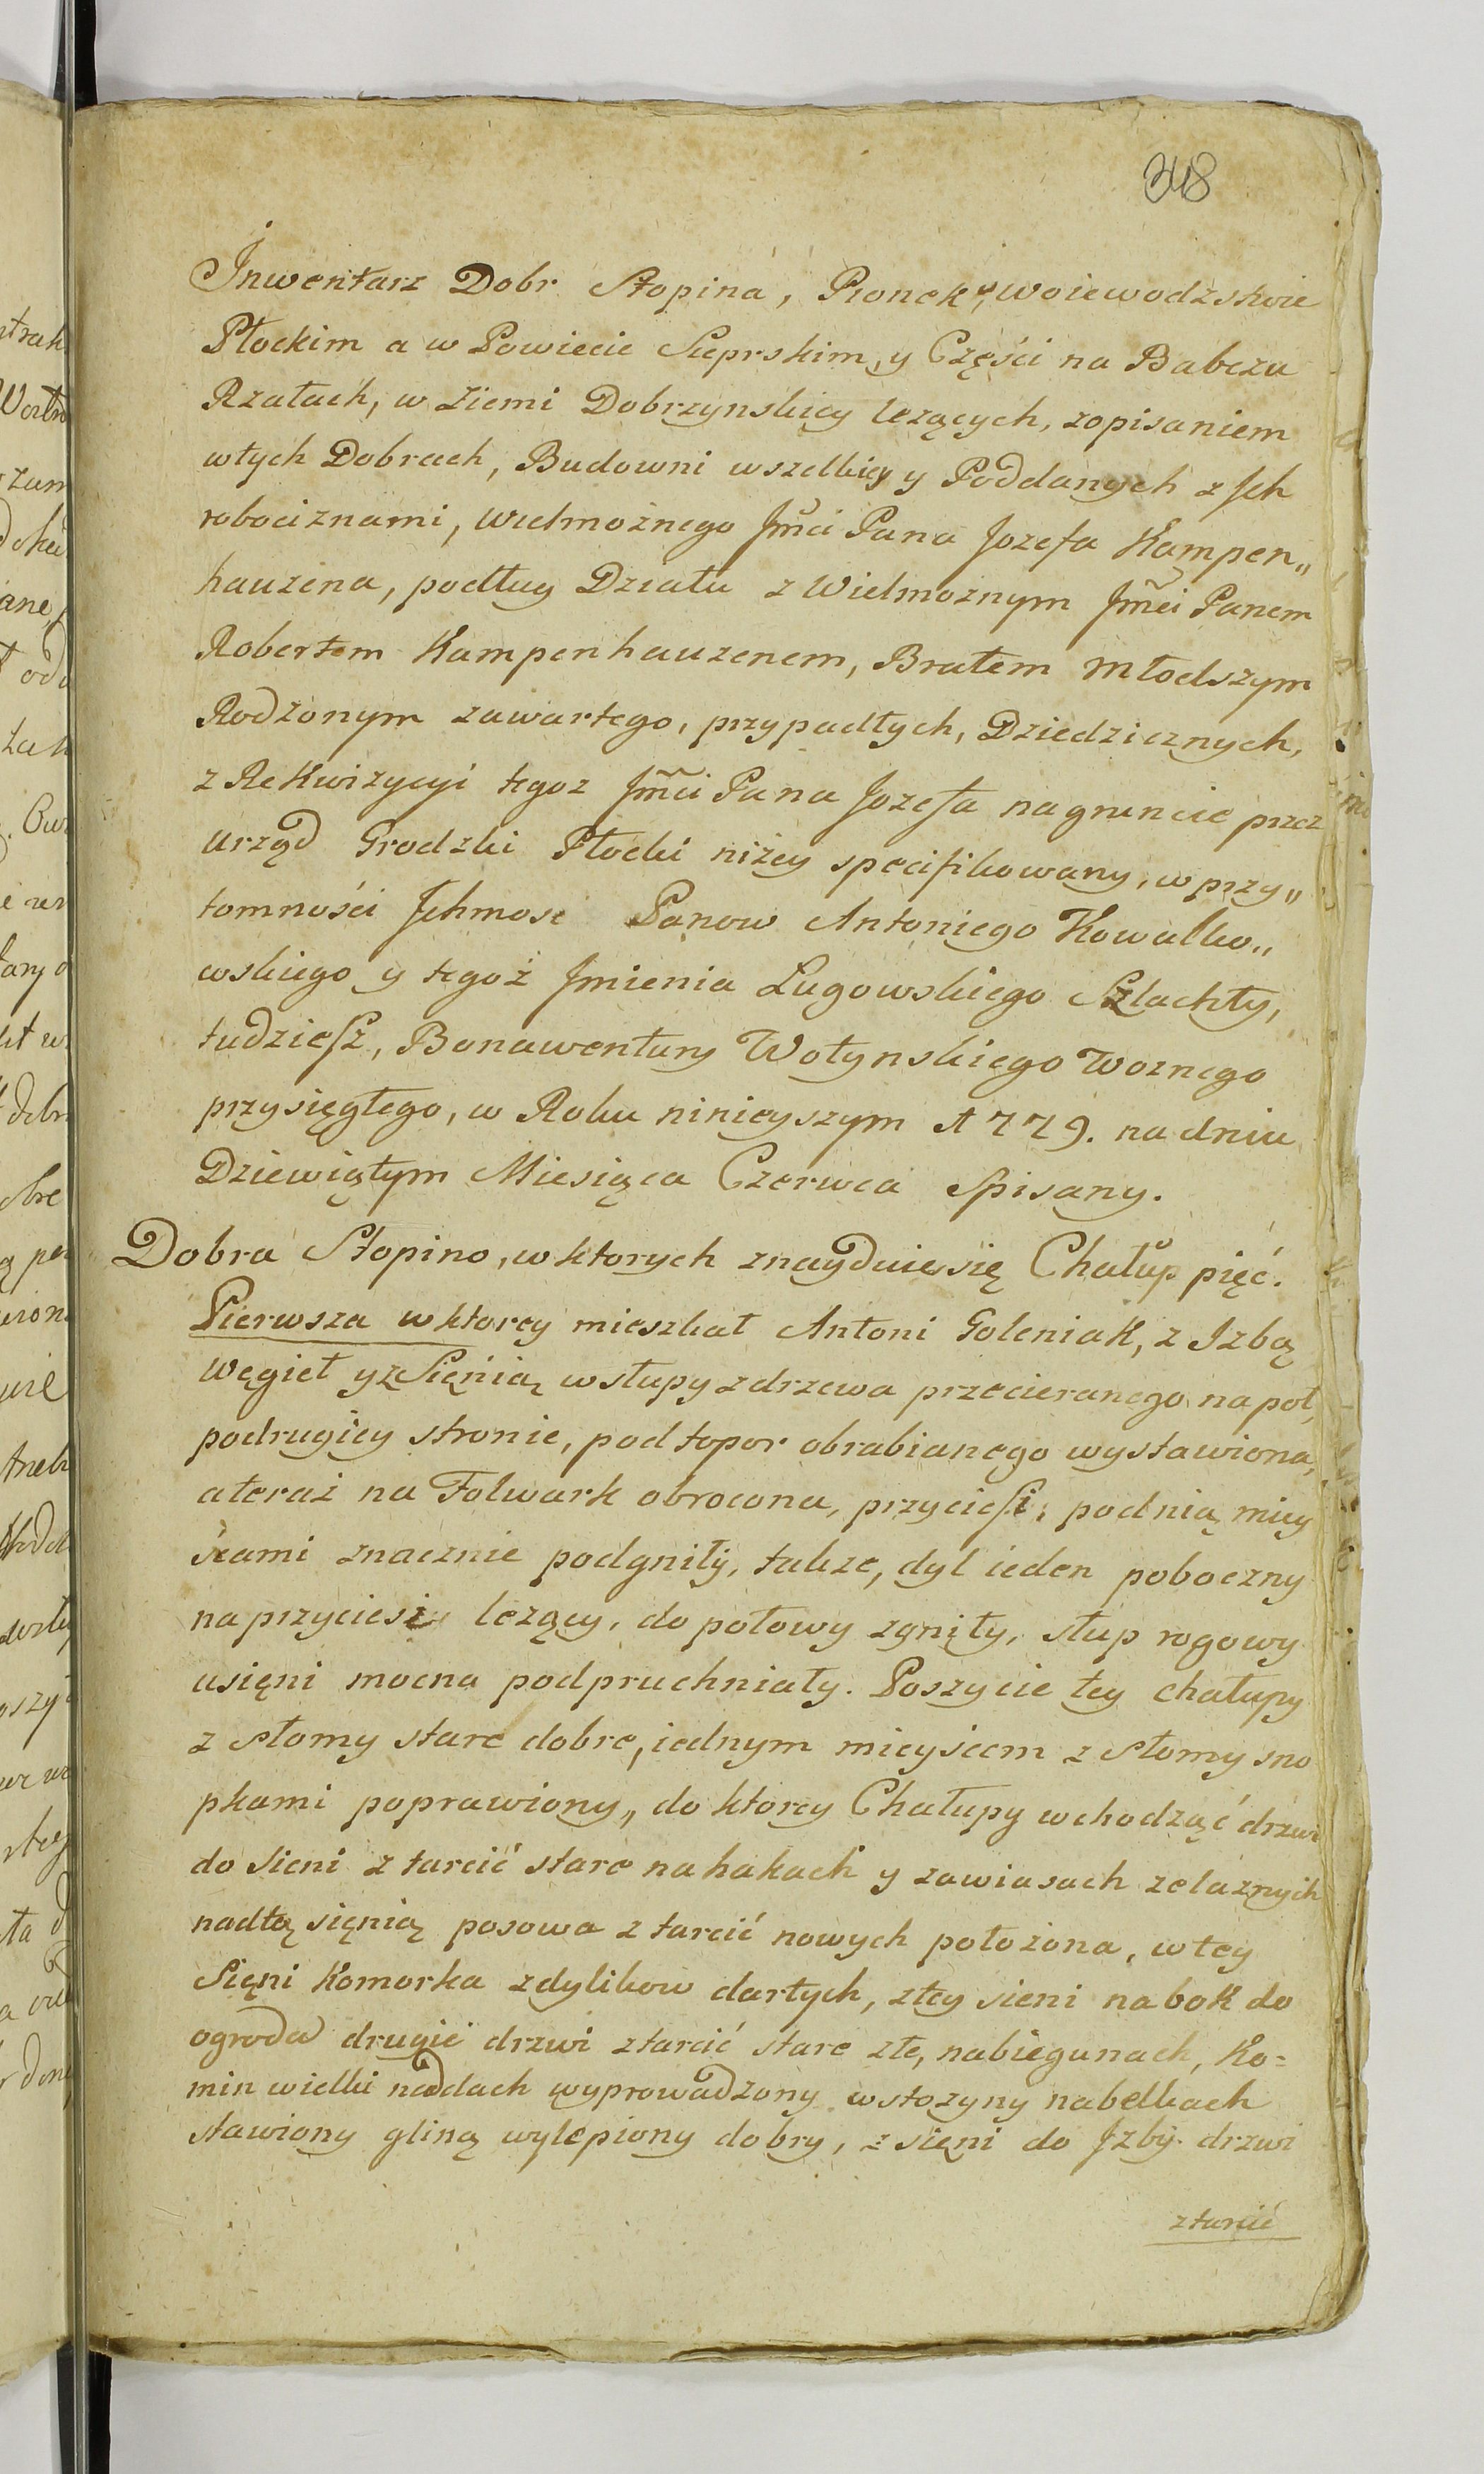 348
Inwentarz Dobr Słopina, Pronek, w woiewodzskie
Płockim a w Powiecie Sieprskim, y Części na Babcza
Rzałach, w Ziemi Dobrzynskiey lezących, zopisaniem
wtych Dobrach, Budowni wszelkiey y Poddanych z Jch
robociznami, Wielmożnego Jm̃ci Pana Jozefa Kampen„
hauzena, podług Działu z Wielmoznym Jm̃ci Panem
Robertem Kampenhauzenem, Bratem Młodszym
Rodzonym zawartego, przypadłych, Dziedzicznych,
z ReKwizycyi tegoz Jm̃ci Pana Jozefa nagruncie przez
Urząd Grodzki Płocki niżey specifikowany, w przy„
tomności Jchmosc Panow Antoniego Kowalko„
wskiego y tegoż Jmienia Ługowskiego Szlachty,
tudziesz, Bonawentury Wołynskiego Woznego
przysięgłego, w Roku ninieyszym 1779. na dniu
Dziewiątym Miesiąca Czerwca Spisany.
Dobra Słopino, w ktorych znayduie się Chałup pięć.
Pierwsza w ktorey mieszkał Antoni GoleniaK, z Izbą
Węgieł y z Sięnią wsłupy zdrzewa przecieranego napoł,
podrugiey stronie, pod topor obrabianego wystawiona,
ateraz na Folwark obrocona, przyciesi, podnią miey
scami znacznie podgniły, takze, dyl ieden poboczny
naprzyciesi lezący, do połowy zgniły, słup rogowy
usięni mocna podpruchniały. Poszycie tey chałupy
z słomy stare dobre, iednym mieyscem z słomy sno
pkami poprawiony„ do ktorey Chałupy wchodząć drzwi
do Sieni z tarcić stare nahakach y zawiasach zelaznych
nadtą sięnią posowa z tarcić nowych połozona, wtey
Sięni Komorka zdylikow dartych, ztey sieni nabok do
ogroda drugie drzwi ztarcić stare złe, nabiegunach, Ko=
min wielki naddach wyprowadzony wstozyny nabelkach
stawiony gliną wylepiony dobry, z sięni do Jzby. drzwi
ztarcić